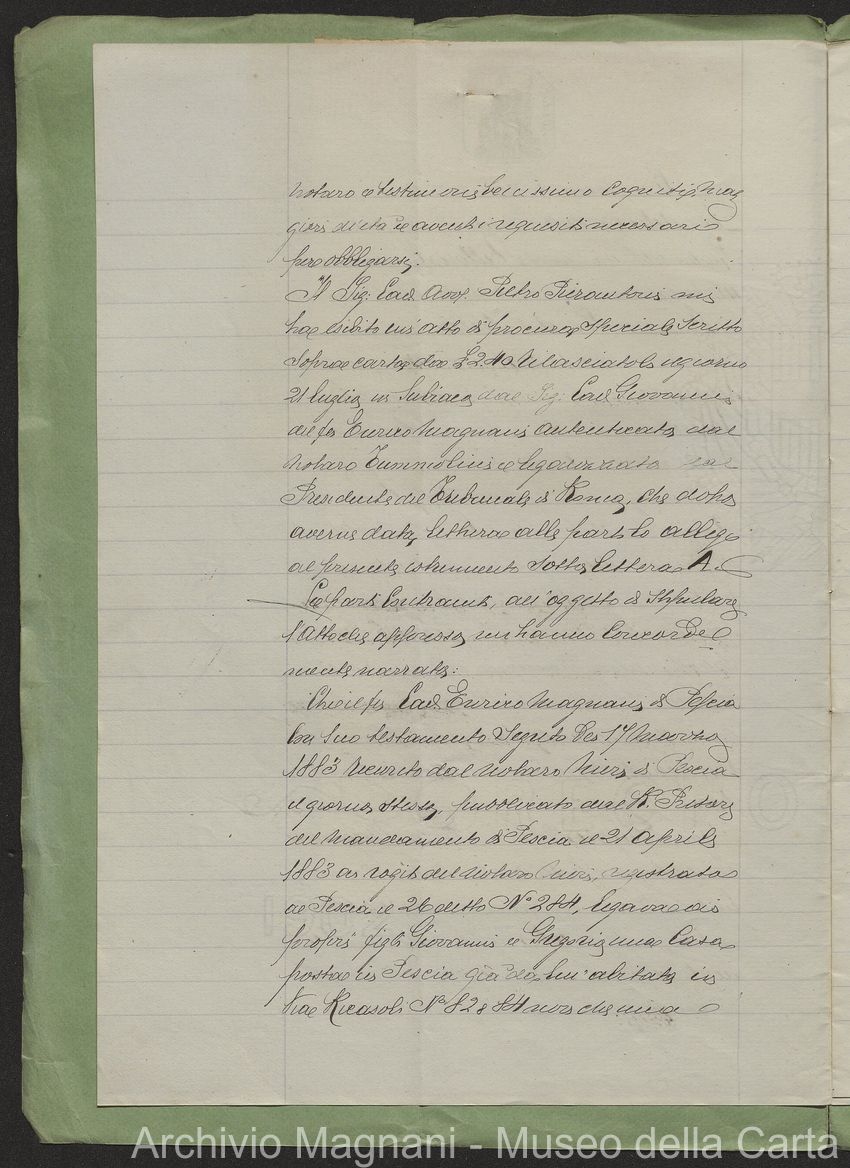 notaro e testimoni benissimo cogniti, mag
giori di età e aventi i requisiti necessari
per obbligarsi.
Il Sig: Cav. Avv. Pietro Pierantoni mi
ha esibito un'atto di procura speciale scritto
sopra carta da £ 2.40 rilasciatole il giorno
21 luglio in Subiaco dal Sig: Cav. Giovanni
del fu Enrico Magnani autenticata dal
notaro e legalizzata dal
Presidente del Tribunale di Roma, che dopo
averne data lettura alle parti lo allego
al presente istrumento sotto lettera A.
Le parti contraenti, all'oggetto di stipulare
l'atto che appresso, mi hanno concorde
mente narrato:
Che il fu Cav. Enrico Magnani di Pescia
con suo testamento segreto de' 17 Marzo
1883 ricevuto dal notaro di Pescia
il giorno stesso, pubblicato dal R. Pretore
del Mandamento di Pescia il 21 Aprile
1883 ai rogiti del notaro registrato
a Pescia il 26 detto N° 284, legava ai
propri figli Giovanni e Gregorio una Casa
posta in Pescia già da lui abitata in
Via Ricasoli N° 82 e 84 non che una
Archivio Magnani - Museo della Carta